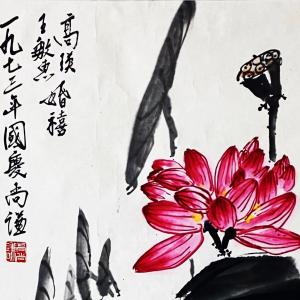 高瑛
王敏惠婚禧
一九七三年國慶尚谦